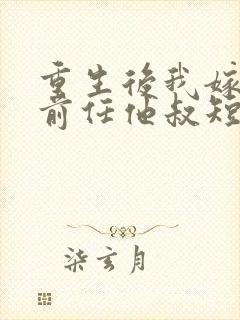 重生後我嫁
前任他叔短
柒玄月